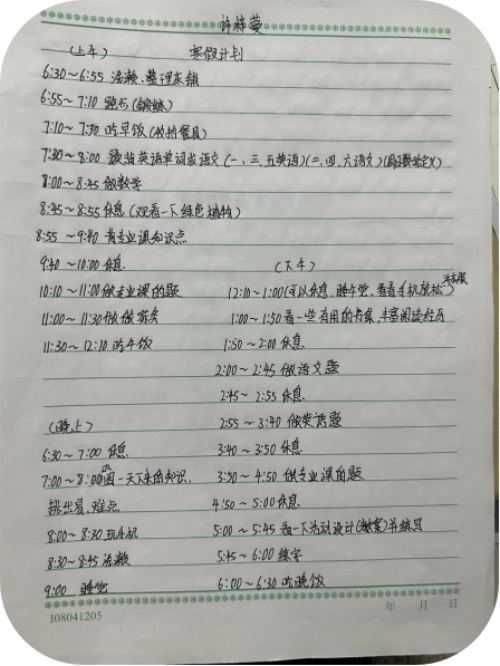 许梓萱
寒假计划
(上午)
6:30~6:55 洗漱、整理床铺
6:55~7:10 跑步(锻炼)
7:10~7:30 吃早饭(收拾餐具)
7:30~8:00 读背英语单词或语文(一、三、五英语)(二、四、六语文)(周日数学定义)
8:00~8:45 做数学
8:45~8:55 休息(观看一下绿色植物)
8:55~9:40 背专业课知识点
9:40~10:00 休息
10:10~11:00 做专业课的题
11:00~11:30 做做家务
11:30~12:10 吃午饭
(下午)
12:10~1:00 (可以休息、睡午觉、看看手机放松)
1:00~1:50 看一些有用的书,丰富阅读经历
1:50~2:00 休息
2:00~2:45 做语文题
2:45~2:55 休息
2:55~3:40 做英语题
3:40~3:50 休息
3:50~4:50 做专业课的题
4:50~5:00 休息
5:00~5:45 看一下活动设计(教案)并练写
5:45~6:00 练字
6:00~6:30 吃晚饭
(晚上)
6:30~7:00 休息
7:00~8:00 巩固一天下来的知识,
挑出易、难点
8:00~8:30 玩手机
8:30~8:45 洗漱
9:00 睡觉
108041205
年 月 日